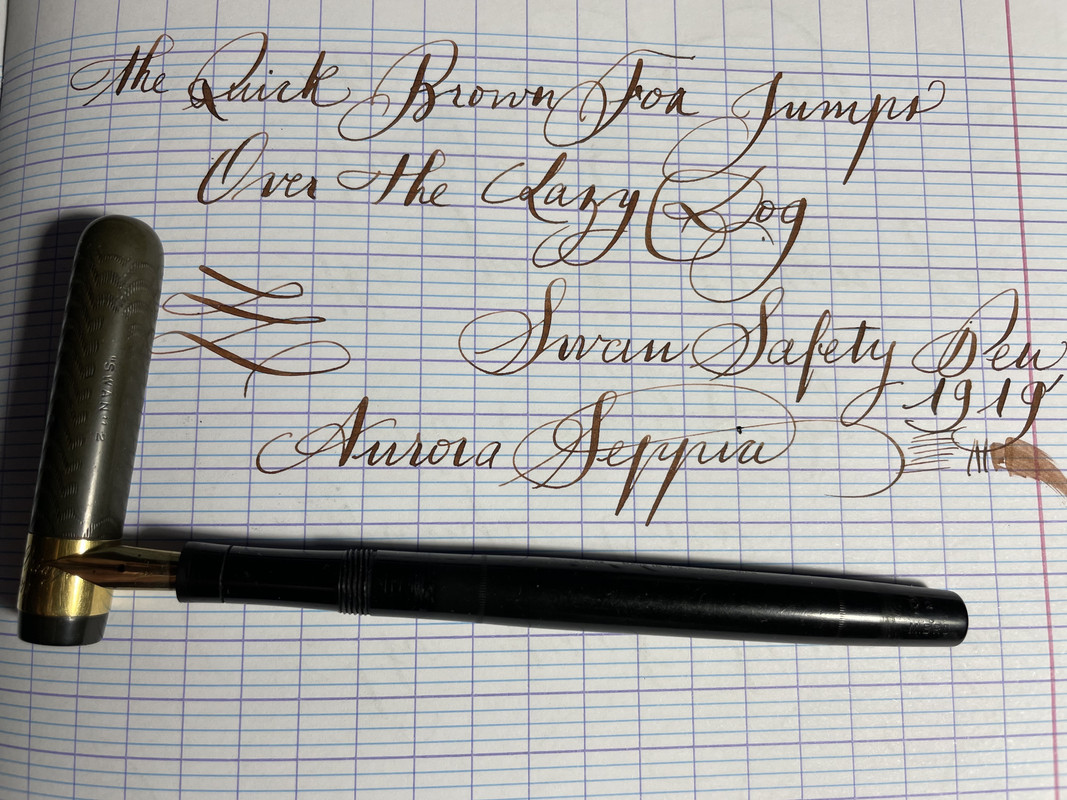 The Quick Brown Fox Jumps
Over the Lazy Dog
Swan Safety Pen
1919
Aurora Seppia
"SWAN" 2